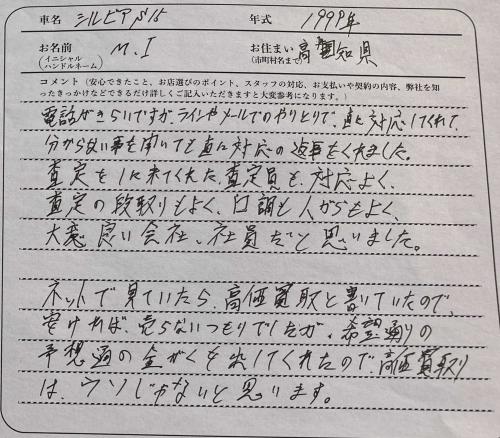 車名 シルビア S15 年式 1999年
お名前 M.I お住まい 高知県
(イニシャル ハンドルネーム) (市町村名まで)
コメント (安心できたこと、お店選びのポイント、スタッフの対応、お支払いや契約の内容、弊社を知
ったきっかけなどできるだけ詳しくご記入いただきますと大変参考になります。)
電話がきらいですが、ラインやメールでのやりとりで、直に対応してくれて、
分からない事を聞いても直に対応の返事をくれました。
査定をしに来てくれた、査定員も、対応よく、
査定の段取りもよく、口調も人がらもよく、
大変良い会社、社員だと思いました。
ネットで見ていたら、高価買取と書いていたので、
安ければ、売らないつもりでしたが、希望通りの
予想通の金がくを出してくれたので、高価買取り
は、ウソじゃないと思います。